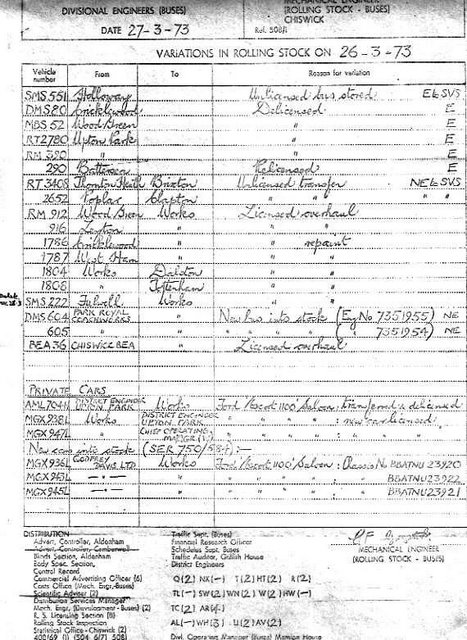 DIVISIONAL ENGINEERS (BUSES)
MECHANICAL ENGINEER
(ROLLING STOCK - BUSES)
CHISWICK
DATE 27-3-73
Ref. 508/1
VARIATIONS IN ROLLING STOCK ON 26-3-73
Vehicle number From To Reason for variation
SMS 551 Holloway Unlicensed bus stored E to SVS
DMS 80 Cricklewood Delicensed E
MBS 52 Wood Green " E
RT 2780 Upton Park " E
RM 390 " " E
290 Battersea Relicensed E
RT 3408 Thornton Heath Brixton Unlicensed transfer NE to SVS
2652 Poplar Clapton " " "
RM 912 Wood Green Works Licensed overhaul
916 Leyton " "
1786 Cricklewood " " repaint
1787 West Ham " " "
1804 Works Dalston " "
1808 " Tottenham " "
SMS 222 Fulwell Works " "
DMS 604 PARK ROYAL COACHWORKS New bus into stock (Eng No 7351955) NE
605 " " " " " ( " 7351954) NE
BEA 36 CHISWICK BEA Licensed overhaul
PRIVATE CARS
AML 704H DISTRICT ENGINEER UPTON PARK Works Ford Escort 1100 Saloon: transferred & delicensed
MGX 938L Works DISTRICT ENGINEER UPTON PARK " " " " : new car licensed.
MGX 947L " CHIEF OPERATING MANGR (1) " " " " "
New cars into stock (SER 750/584):-
MGX 936L GODFREY DAVIS LTD Works Ford Escort 1100 Saloon: Chassis No BBATNU 23920
MGX 943L —"— " " " " " BBATNU 23922
MGX 945L —"— " " " " " BBATNU 23921
DISTRIBUTION
Advert. Controller, Aldenham
Advert. Controller, Camberwell
Blinds Section, Aldenham
Body Spec. Section,
Control Record
Commercial Advertising Officer (6)
Costs Office (Mech. Engr-Buses)
Scientific Adviser (2)
Distribution Services Manager
Mech. Engr. (Development - Buses) (2)
R.S. Licensing Section (1)
Rolling Stock Inspection
Statistical Office - Chiswick (2)
Traffic Supt. (Buses)
Financial Research Officer
Schedules Supt. Buses
Traffic Auditor, Griffith House
District Engineers
Q(2) NK(-) T(2) HT(2) R(2)
TL(-) SW(2) WN(2) W(2) HW(-)
TC(2) AR(4)
AL(-) WH(3) U(2) AV(2)
Divl. Operating Manager (Buses) Manion House
MECHANICAL ENGINEER
(ROLLING STOCK - BUSES)